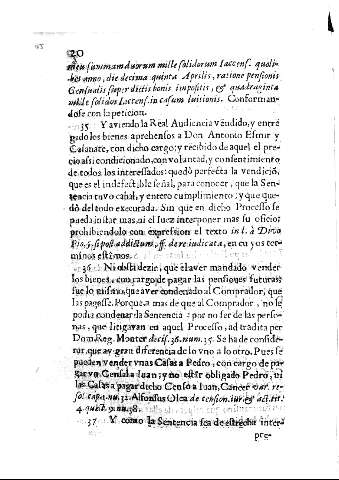 20
meu summam duorum mille solidorum Iaccens. quoli-
bet anno, die decima quinta Aprilis, ratione pensionis
Censualis super dictis bonis impositis, & quadraginta
mille solidos Iaccens. in casum luitionis. Conforman-
dose con la peticion.
35 Y aviendo la Real Audiencia vẽdido, y entre
gado los bienes aprehensos a Don Antonio Esmir y
Casanate, con dicho cargo; y recibido de aquel el pre-
cio assi condicionado, con volantad, y consentimiento
de todos los interessados: quedò perfecta la vendiciõ,
que es el indefectible señal, para conocer, que la Sen-
tencia tuvo cabal, y entero cumplimiento; y que que-
dò del todo executada. Sin que en dicho Processo se
pueda instar mas, ni el Iuez interponer mas su oficio;
prohibiendolo con expression el texto in l. à Divo
Pio, §. si post addictum, ff. de re iudicata, en cuyos ter-
minos estamos.
36 Ni obsta dezir, que el aver mandado vender
los bienes, con cargo de pagar las pensiones futuras
fue lo mismo, que aver condenado al Comprador, que
las pagasse. Porque a mas de que al Comprador, no le
podia condenar la Sentencia: por no ser de las perso-
nas, que litigavan en aquel Processo, ad tradita per
Dom. Reg. Monter decis. 36. num. 35. Se ha de conside-
rar, que ay gran diferencia de lo vno a lo otro. Pues se
pueden vender vnas Casas a Pedro, con cargo de pa-
gar vn Censal a Iuan; y no estàr obligado Pedro, ni
las Casas a pagar dicho Censo a Iuan, Cancer var. re-
sol. cap. num. 32. Alfonsus Olea de cession. iur. & act. tit.
4. quæst. num. 38.
37 Y como la Sentencia sea de estrecha inter-
pre-